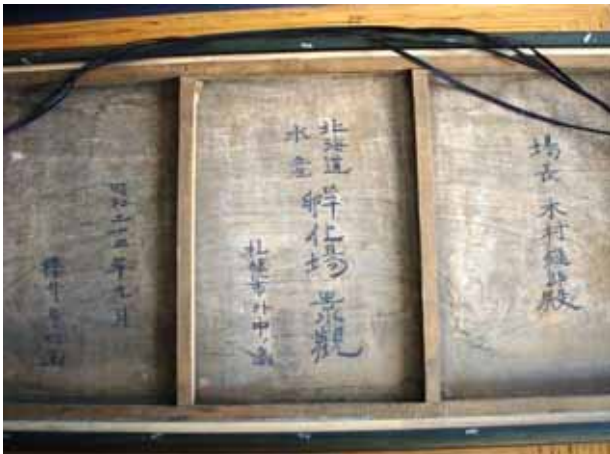 場長 木村 殿
北海道
水産
孵化場 景觀
札幌市外中ノ島
昭和二十四年九月
櫻井 画